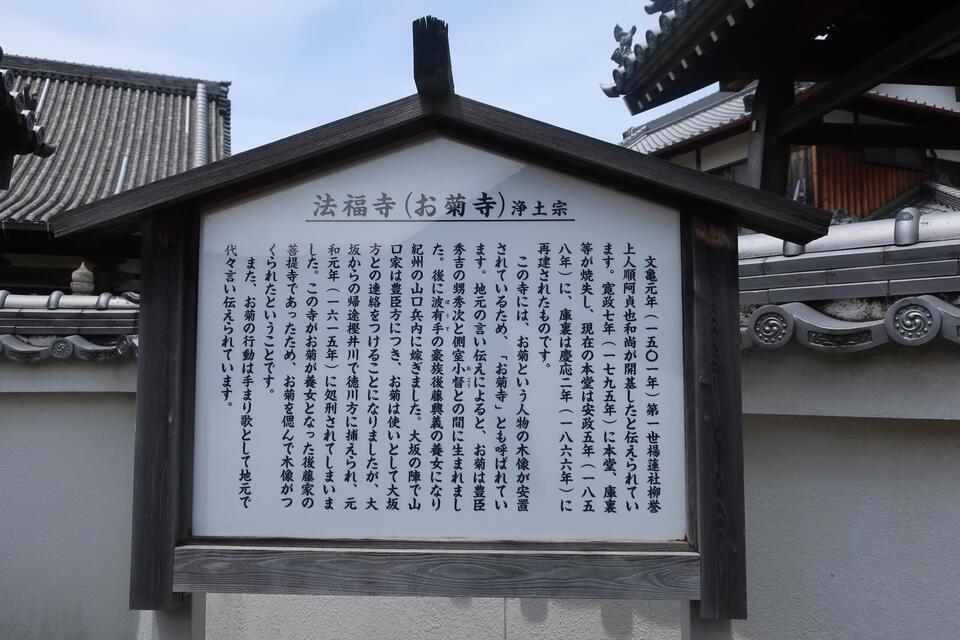 法福寺(お菊寺)浄土宗
文亀元年(一五〇一年)第一世楊蓮社柳誉
上人順阿貞也和尚が開基したと伝えられてい
ます。寛政七年(一七九五年)に本堂、庫裏
等が焼失し、現在の本堂は安政五年(一八五
八年)に、庫裏は慶応二年(一八六六年)に
再建されたものです。
この寺には、お菊という人物の木像が安置
されているため、「お菊寺」とも呼ばれてい
ます。地元の言い伝えによると、お菊は豊臣
秀吉の甥秀次と側室小督との間に生まれまし
おごう
た。後に波有手の豪族後藤興義の養女になり
ぼうで
紀州の山口兵内に嫁ぎました。大坂の陣で山
口家は豊臣方につき、お菊は使いとして大坂
方との連絡をつけることになりましたが、大
坂からの帰途樫井川で徳川方に捕えられ、元
和元年(一六一五年)に処刑されてしまいま
した。この寺がお菊が養女となった後藤家の
菩提寺であったため、お菊を偲んで木像がつ
くられたということです。
また、お菊の行動は手まり歌として地元で
代々言い伝えられています。